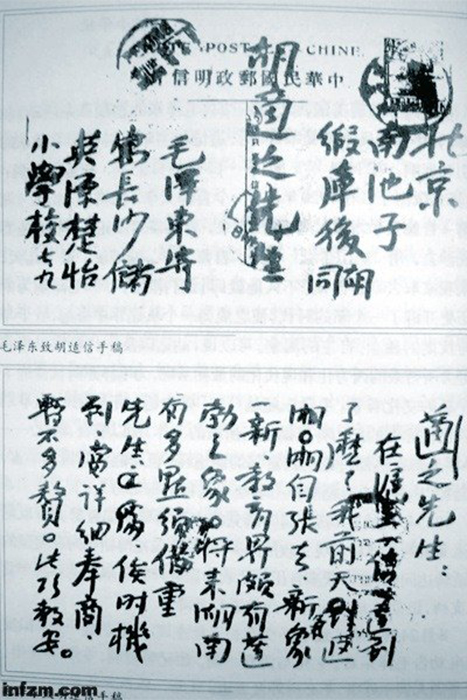 POST CHINE.
中華民國郵政明信片
北京
南池子
緞庫後胡同
胡適之先生
毛澤東寄
長沙儲
英源楚怡
小學校 七九
毛泽东致胡适信手稿
適之先生：
在滬上一信達到
了麼？我前天返
湘。湘自張去，新氣象
新，教育界頗有蓬
勃之象。將來湖南
有多點須借重
先生，俟時機
到，當詳細奉商，
暫不多贅。此頌教安。
infzm.com
信手稿